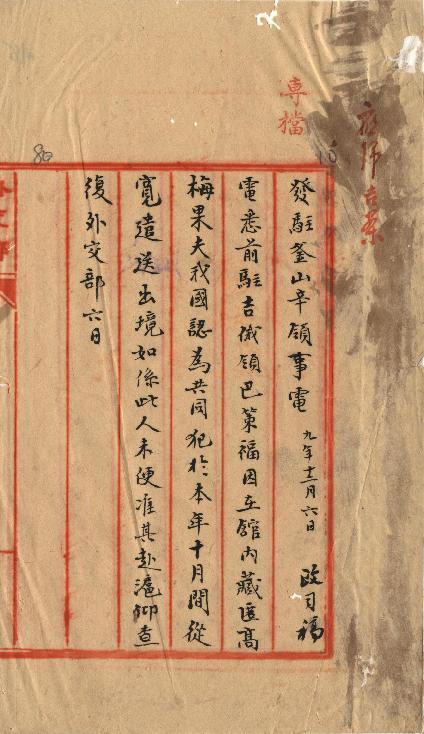 專檔
發駐釜山辛領事電 九年十二月六日 政司稿
電悉前駐吉俄領巴策福因在館內藏匿高
梅果夫我國認為共同犯於本年十月間從
寬遣送出境如係此人未便准其赴滬仰查
復外交部六日